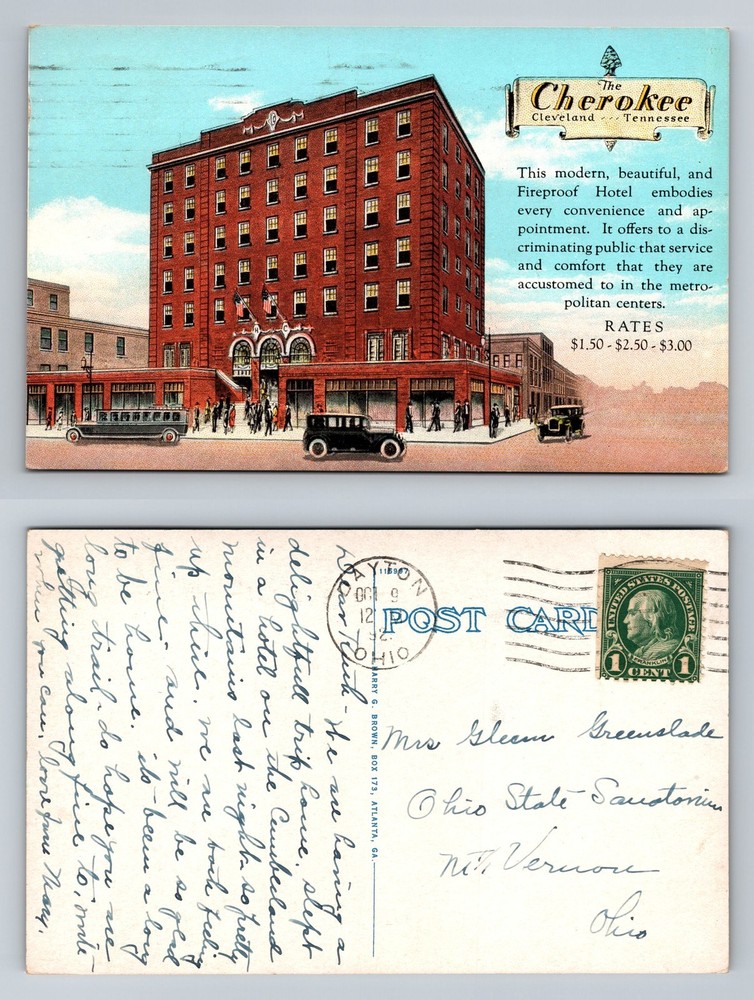 The
Cherokee
Cleveland --- Tennessee
This modern, beautiful, and
Fireproof Hotel embodies
every convenience and ap-
pointment. It offers to a dis-
criminating public that service
and comfort that they are
accustomed to in the metro-
politan centers.
RATES
$1.50 - $2.50 - $3.00
Dear Ruth - We are having a
delightfull trip home. slept
in a hotel on the Cumberland
mountains last night - so pretty
up there. we are both feeling
fine - and will be so glad
to be home. its been a long
long trail - do hope you are
getting along fine to, write
when you can, love from Mary.
DAYTON
OCT 9
12 P
192
OHIO
115997
POST CARD
HARRY G. BROWN, BOX 173, ATLANTA, GA.
UNITED STATES POSTAGE
FRANKLIN
1 CENT 1
Mrs Glenn Greenslade
Ohio State Sanatorium
Mt. Vernon
Ohio